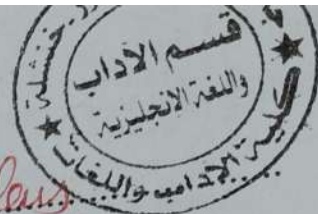 قسم الآداب
واللغة الانجليزية
كلية الآداب واللغات
خنشلة